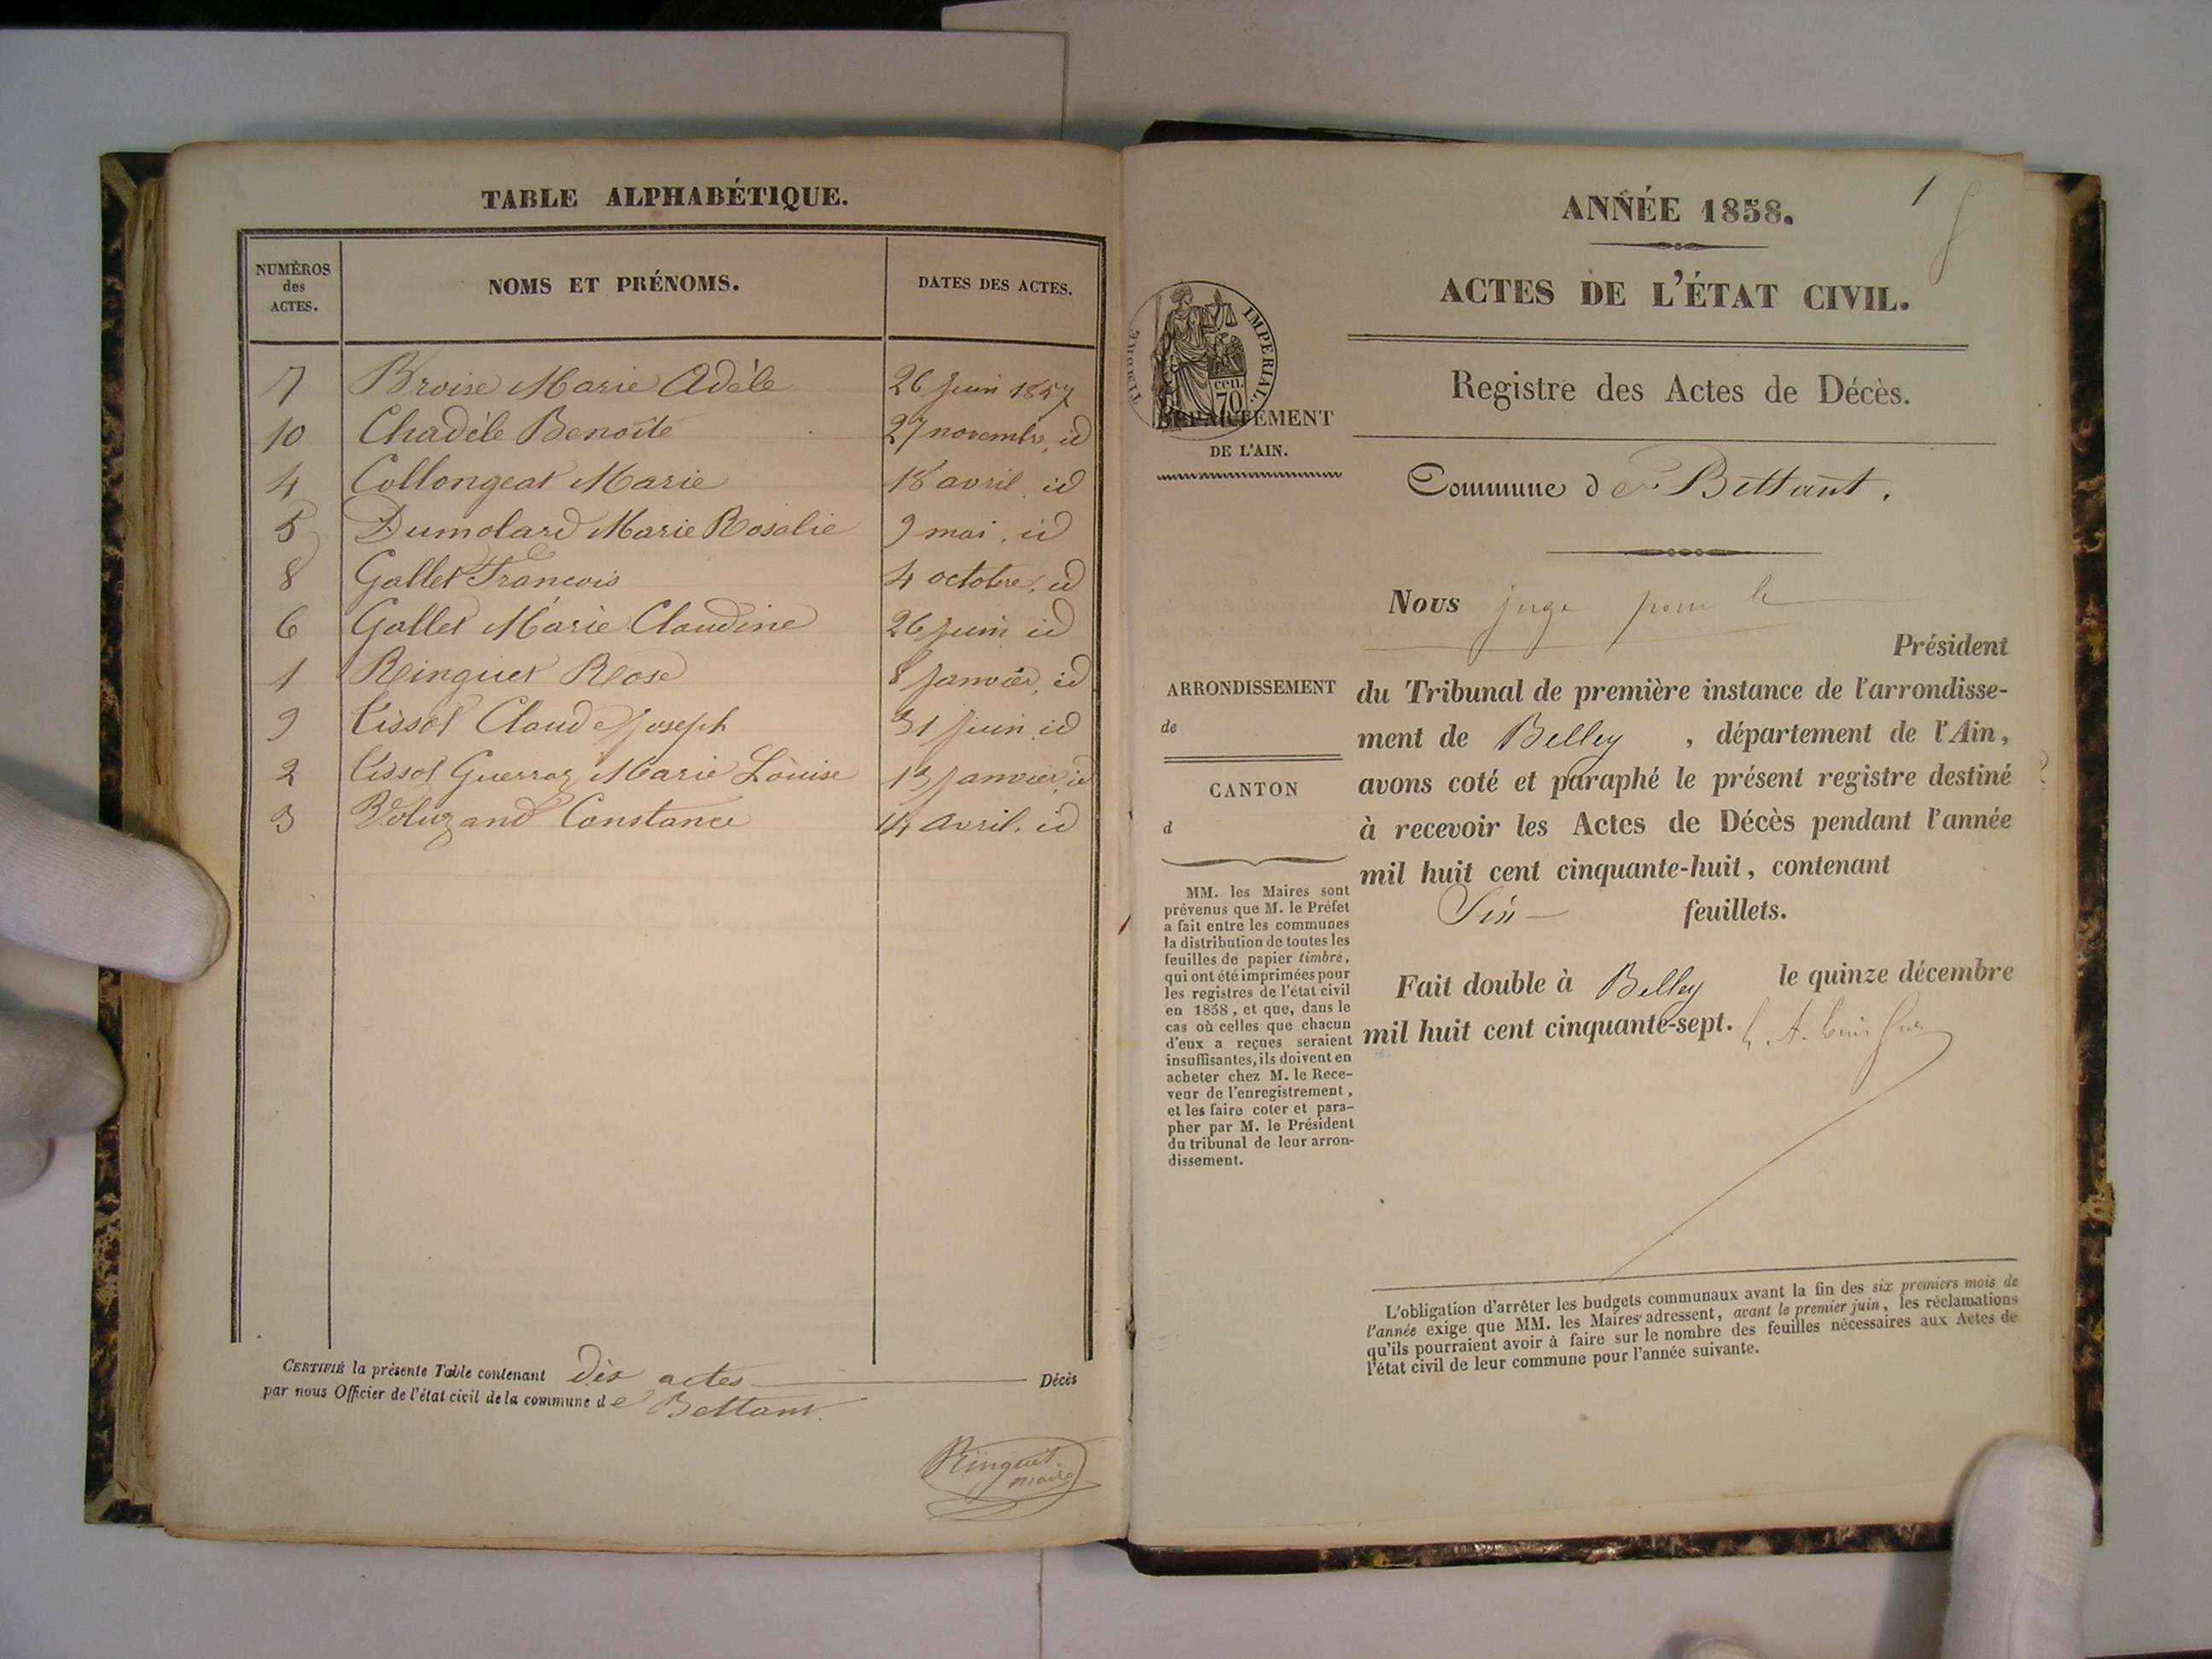 TABLE ALPHABÉTIQUE.
NUMÉROS des ACTES.
NOMS ET PRÉNOMS.
DATES DES ACTES.
7 Broise Marie Adèle 26 Juin 1857
10 Chadèle Benoîte 27 novembre, id
4 Collongeat Marie 18 avril id
5 Dumolard Marie Rosalie 9 mai, id
8 Gallet Francois 4 octobre, id
6 Gallet Marie Claudine 26 Juin id
1 Ringuet Rose 8 Janvier, id
9 Tissot Claude Joseph 31 Juin id
2 Tissot Guerraz Marie Louise 13 Janvier id
3 Voluzand Constance 14 Avril. id
CERTIFIÉ la présente Table contenant Dix actes Décès
par nous Officier de l'état civil de la commune de Bettant.
Ringuet
maire
1
ANNÉE 1858.
ACTES DE L'ÉTAT CIVIL.
TIMBRE IMPERIAL.
70 cen.
DÉPARTEMENT
DE L'AIN.
Registre des Actes de Décès.
Commune de Bettant.
Nous juge pour le
Président
du Tribunal de première instance de l'arrondisse-
ment de Belley, département de l'Ain,
avons coté et paraphé le présent registre destiné
à recevoir les Actes de Décès pendant l'année
mil huit cent cinquante-huit, contenant
Six feuillets.
Fait double à Belley le quinze décembre
mil huit cent cinquante-sept.
ARRONDISSEMENT
de
CANTON
d
MM. les Maires sont
prévenus que M. le Préfet
a fait entre les communes
la distribution de toutes les
feuilles de papier timbré,
qui ont été imprimées pour
les registres de l'état civil
en 1858, et que, dans le
cas où celles que chacun
d'eux a reçues seraient
insuffisantes, ils doivent en
acheter chez M. le Rece-
veur de l'enregistrement,
et les faire coter et para-
pher par M. le Président
du tribunal de leur arron-
dissement.
L'obligation d'arrêter les budgets communaux avant la fin des six premiers mois de
l'année exige que MM. les Maires adressent, avant le premier juin, les réclamations
qu'ils pourraient avoir à faire sur le nombre des feuilles nécessaires aux Actes de
l'état civil de leur commune pour l'année suivante.